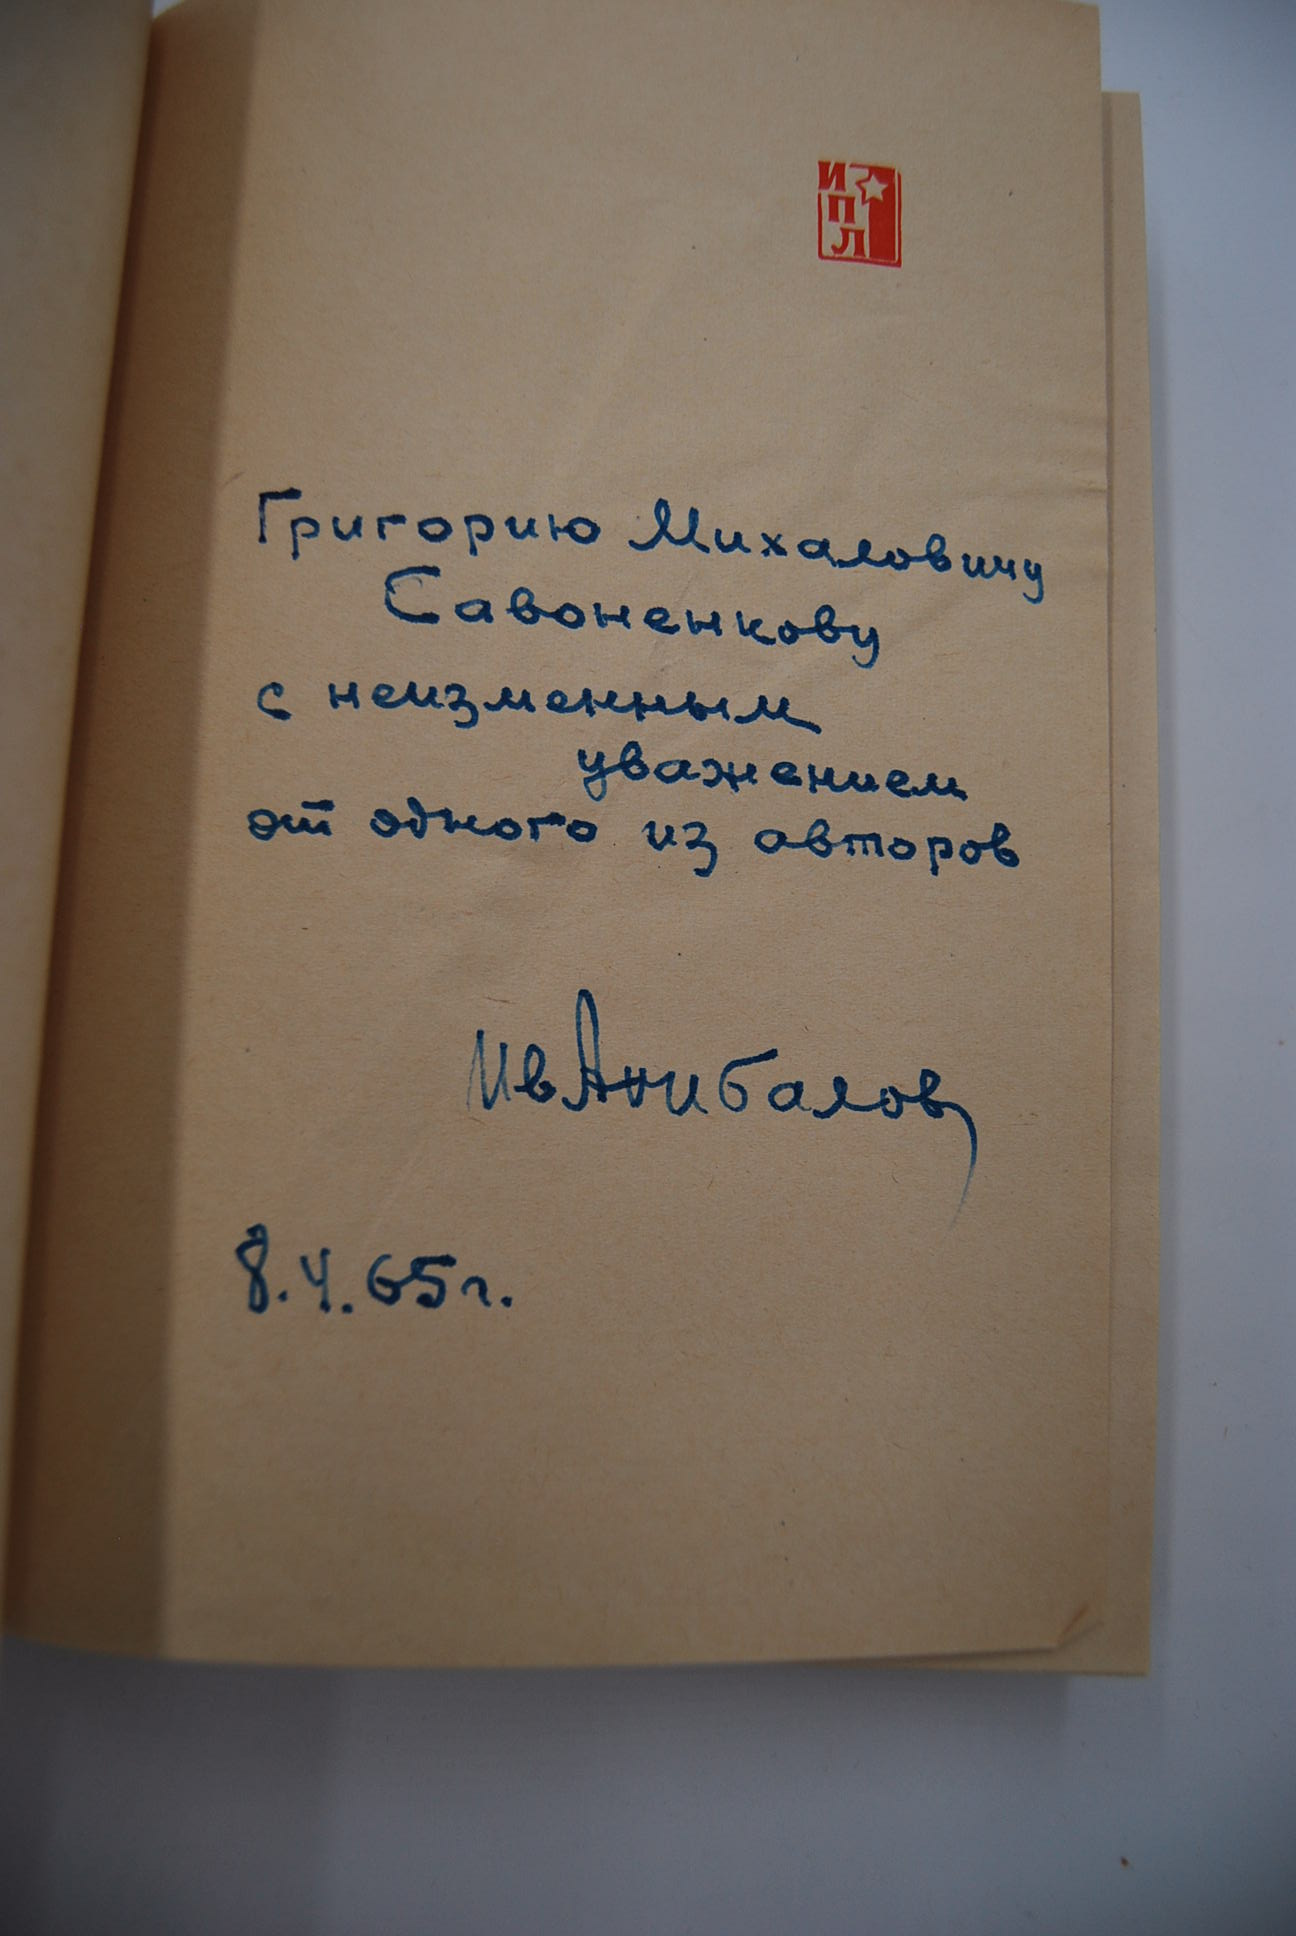 И
П
Л
Григорию Михаловичу
Савоненкову
с неизменным
уважением
от одного из авторов
Ив Анибалов
8.4.65г.